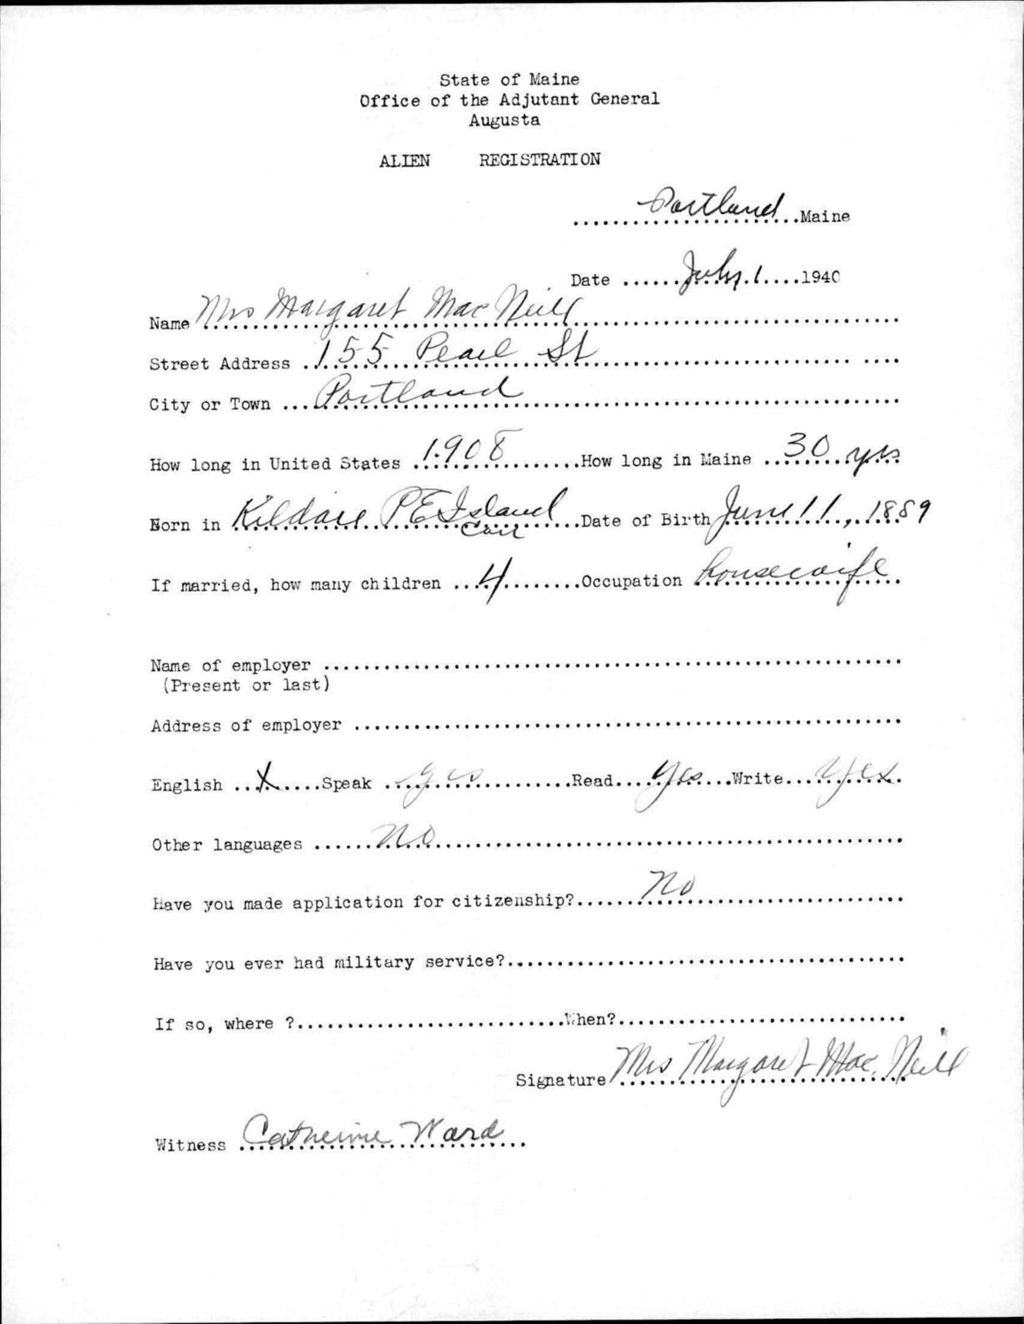 State of Maine
Office of the Adjutant General
Augusta
ALIEN REGISTRATION
Portland Maine
Date July 1 1940
Name Mrs Margaret Mac Neill
Street Address 155 Pearl St
City or Town Portland
How long in United States 1908 How long in Maine 30 yrs
Born in Kildare P E Island Can Date of Birth June 11, 1889
If married, how many children 4 Occupation housewife
Name of employer
(Present or last)
Address of employer
English X Speak yes Read Yes Write Yes
Other languages no
Have you made application for citizenship? No
Have you ever had military service?
If so, where ? When?
Signature Mrs Margaret Mac Neill
Witness Catherine Ward